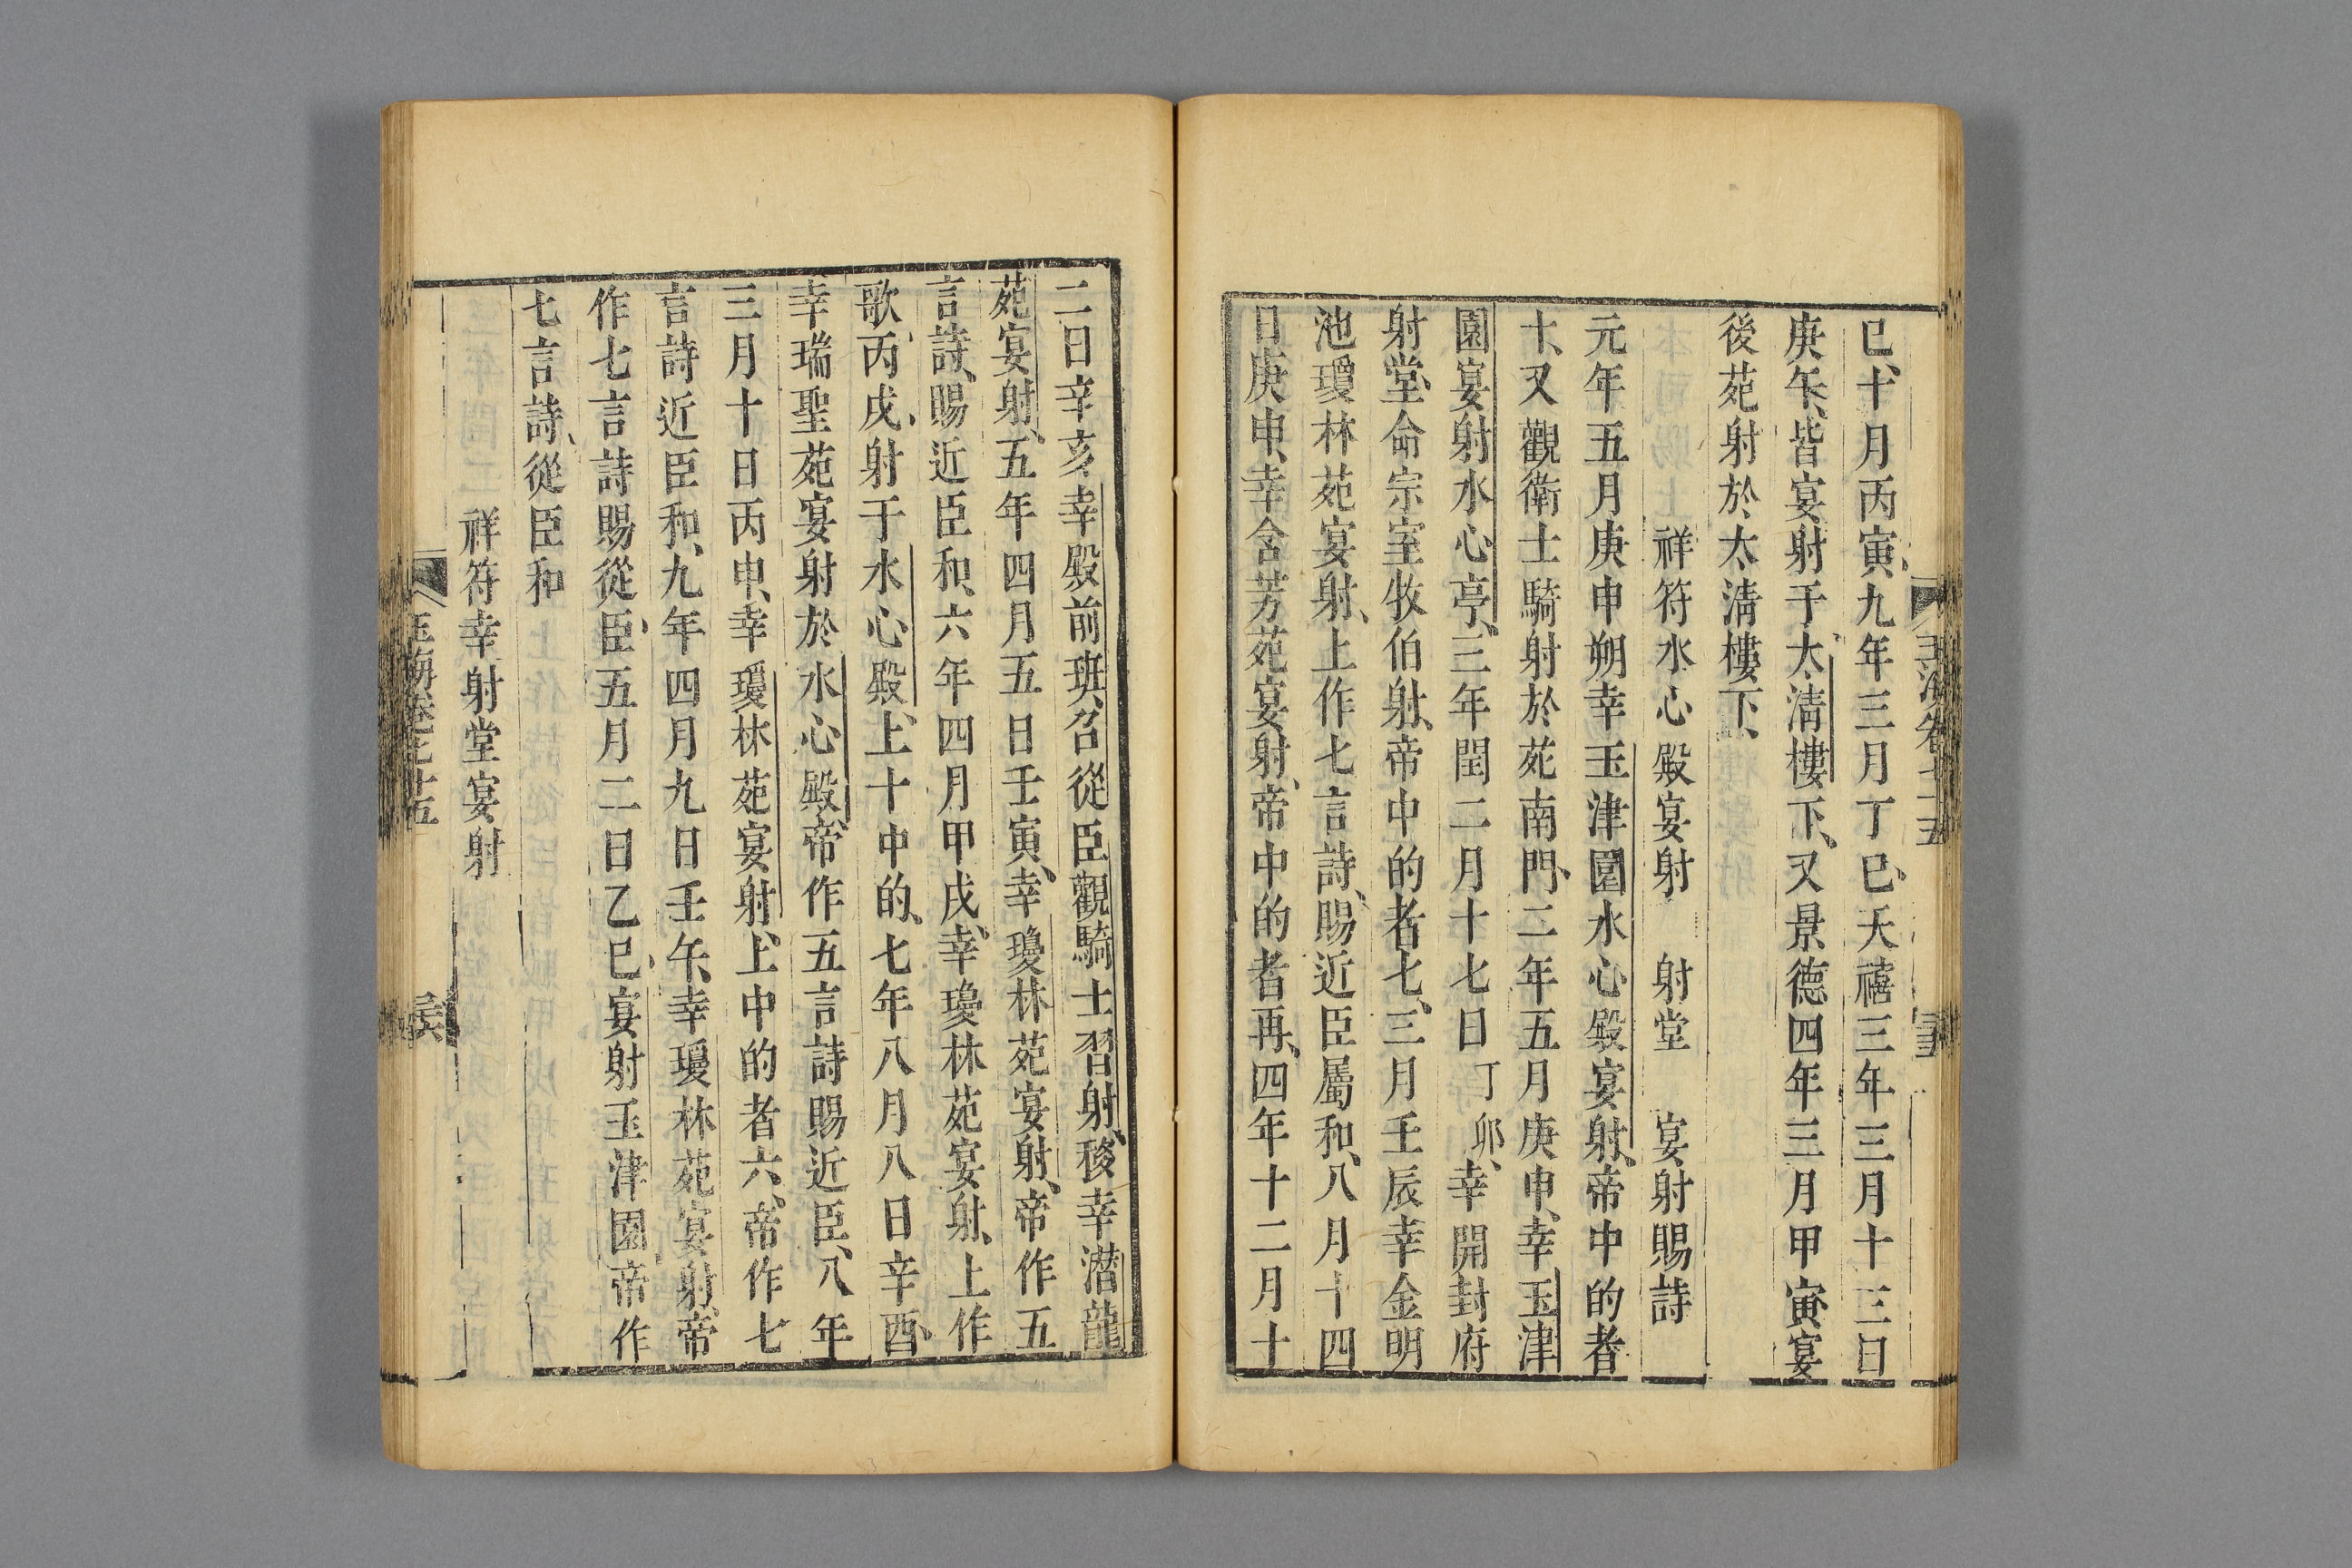 巳、十月丙寅、九年三月丁巳、天禧三年三月十三日
庚午、皆宴射于太淸樓下、又景德四年三月甲寅宴
後苑射於太淸樓下、
祥符水心殿宴射 射堂 宴射賜詩
元年五月庚申朔幸玉津園水心殿宴射、帝中的者
十、又觀衛士騎射於苑南門、二年五月庚申、幸玉津
園宴射水心亭、三年閏二月十七日丁卯、幸開封府
射堂、命宗室牧伯射、帝中的者七、三月壬辰幸金明
池瓊林苑宴射、上作七言詩、賜近臣屬和、八月十四
日庚申、幸含芳苑宴射、帝中的者再、四年十二月十
二日辛亥、幸殿前班、召從臣觀騎士習射、移幸潛龍
苑宴射、五年四月五日壬寅、幸瓊林苑宴射、帝作五
言詩、賜近臣和、六年四月甲戌、幸瓊林苑宴射、上作
歌、丙戌、射于水心殿、上十中的、七年八月八日辛酉、
幸瑞聖苑宴射於水心殿、帝作五言詩賜近臣、八年
三月十日丙申、幸瓊林苑宴射、上中的者六、帝作七
言詩近臣和、九年四月九日壬午、幸瓊林苑宴射、帝
作七言詩賜從臣、五月二日乙巳、宴射玉津園、帝作
七言詩、從臣和
祥符幸射堂宴射
玉海卷七十五